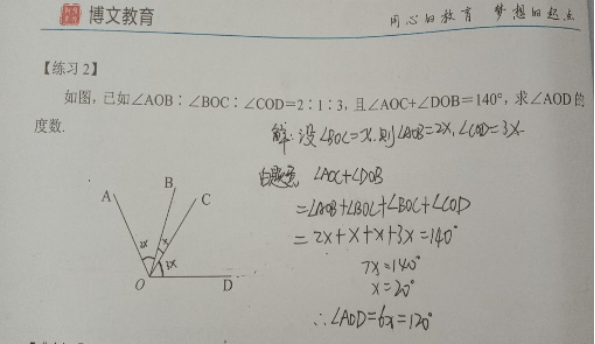 博文教育
用心的教育 梦想的起点
【练习2】
如图,已如∠AOB:∠BOC:∠COD=2:1:3,且∠AOC+∠DOB=140°,求∠AOD的
度数.
解:设∠BOC=x.则∠AOB=2x,∠COD=3x
由题意 ∠AOC+∠DOB
=∠AOB+∠BOC+∠BOC+∠COD
=2x+x+x+3x=140°
7x=140°
x=20°
∴∠AOD=6x=120°
A
B
C
2x
x
3x
O
D